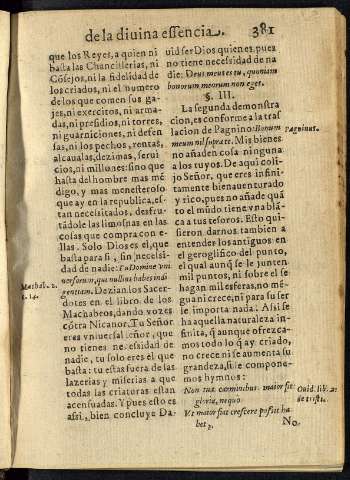 de la diuina essencia. 381
que los Reyes, a quien ni
basta las Chancillerias, ni
Cōsejos, ni la fidelidad de
los criados, ni el numero
de los que comen sus ga-
jes, ni exercitos, ni arma-
das, ni presidios, ni torres,
ni guarniciones, ni defen
sas, ni los pechos, rentas,
alcaualas, dezimas, serui
cios, ni millones: sino que
hasta del hombre mas mē
digo, y mas menesteroso
que ay en la republica, es-
tan necesitados, desfru-
tādole las limosnas en las
cosas que compra con e-
llas. Solo Dios es el, que
basta para si, sin necesi-
dad de nadie: Tu Domine vni
uersorum, qui nullius habes indi
gentiam. Dezian los Sacer-
dotes en el libro de los
Machabeos, dando vozes
cōtra Nicanor. Tu Señor
eres vniuersal señor, que
no tienes necesidad de
nadie, tu solo eres el que
basta: tu estas fuera de las
lazerias y miserias a que
todas las criaturas estan
acensuadas. Y pues esto es
assi, bien concluye Da-
Machab. 2.
c. 14.
uid ser Dios quien es, pues
no tiene necesidad de na
die. Deus meus es tu, quoniam
bonorum meorum non eges.
§. III.
La segunda demonstra
cion, es conforme a la tras
lacion de Pagnino: Bonum
meum nil supra te. Mis bienes
no añaden cosa ninguna
a los tuyos. De aquí coli-
jo Señor, que eres infini-
tamente bienauenturado
y rico, pues no añade quā
to el mūdo tiene vna blā-
ca a tus tesoros. Esto qui-
sieron darnos tambien a
entender los antiguos en
el geroglifico del punto,
el qual aunq̃ se le junten
mil puntos, ni sobre el se
hagan mil esferas, no mē-
gua ni crece, ni para su ser
le importa nada. Assi se
ha aquella naturaleza in-
finita, q̃ aunque ofrezca-
mos todo lo q̃ ay criado,
no crece ni se aumenta su
grandeza, si le compone-
mos hymnos:
Non tua carminibus maior fit
gloria, nequo
Vt maior fiat crescere possit ha
bet,
Pagninus.
Ouid. lib. 2.
de trist.
No.